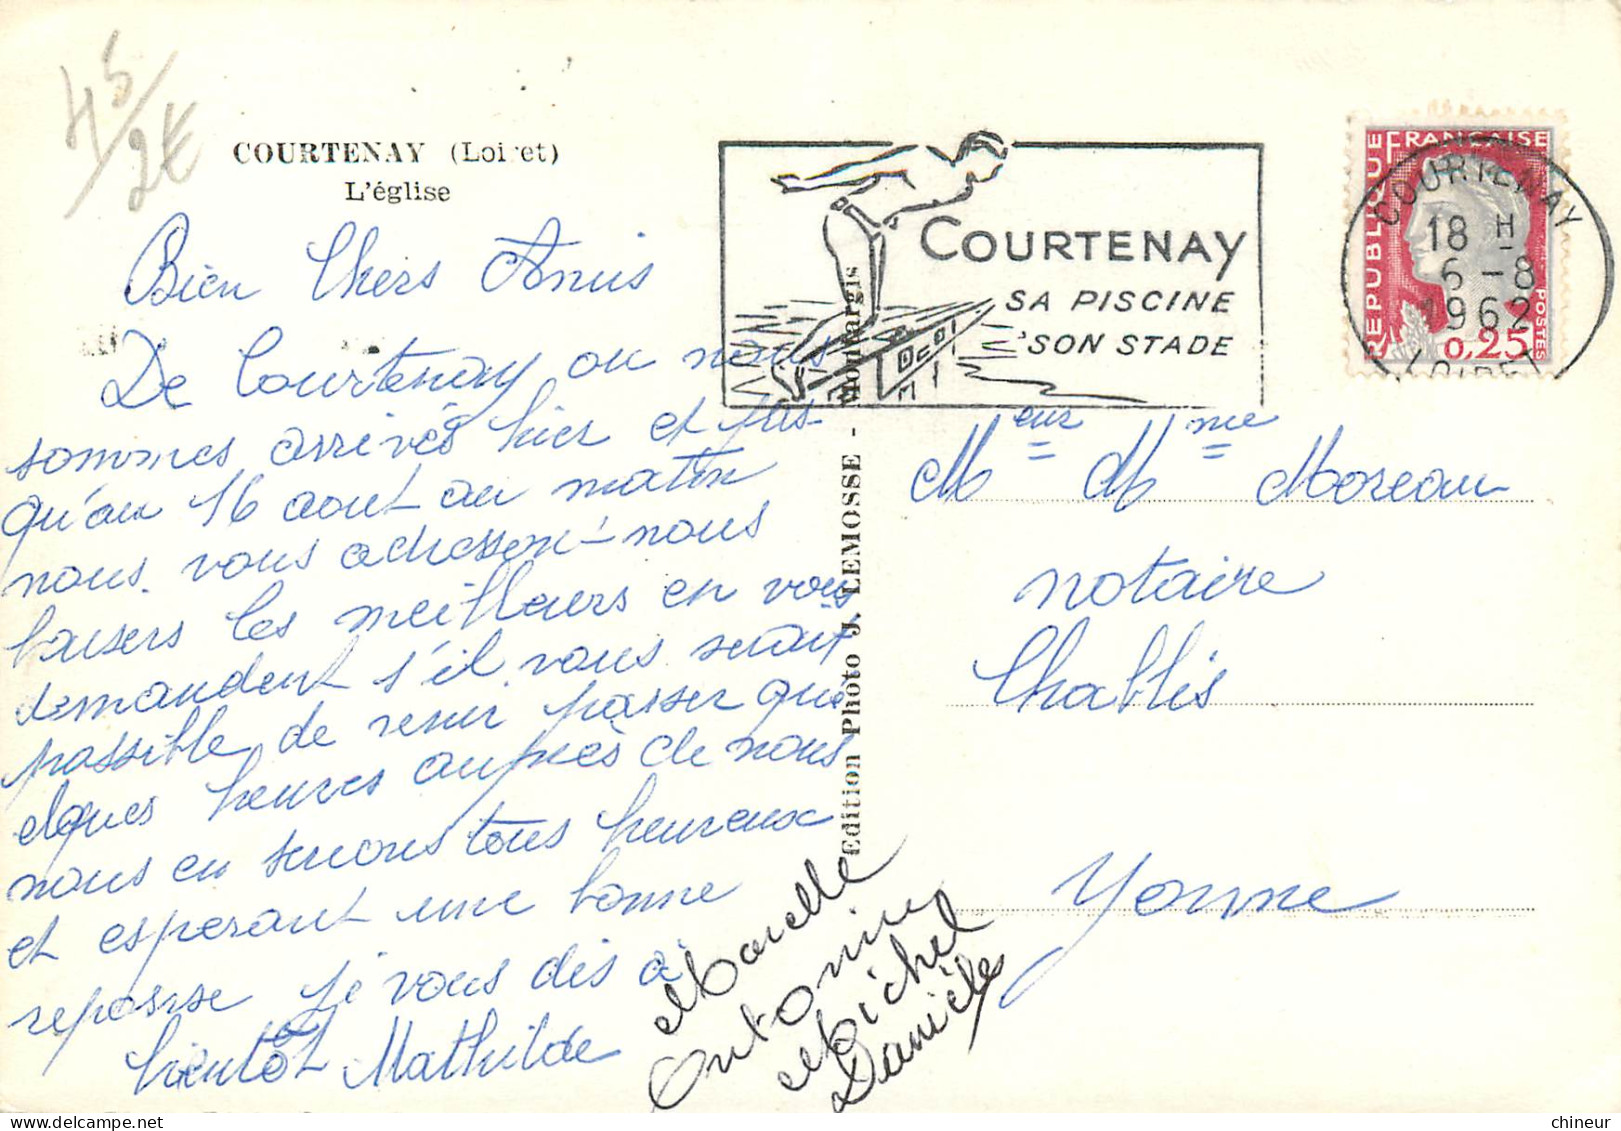 45
2€
COURTENAY (Loiret)
L'église
Bien Chers Amis
De Courtenay ou nous
sommes arrivés hier et jus-
qu'au 16 aout au matin
nous vous adressons nous
baisers les meilleurs en vous
demandent s'il vous serait
possible de venir passer quel
elques heures auprès de nous
nous en serions tous heureux
et esperant une bonne
reponse je vous dis à
bientôt Mathilde
Marcelle
Antonin
Michel
Danièle
Edition Photo J. LEMOSSE - Montargis
COURTENAY
SA PISCINE
SON STADE
REPUBLIQUE FRANÇAISE
POSTES
0,25
COURTENAY
18 H
6 - 8
1962
LOIRET
Meur Mme Moreau
notaire
Chablis
Yonne
chineur